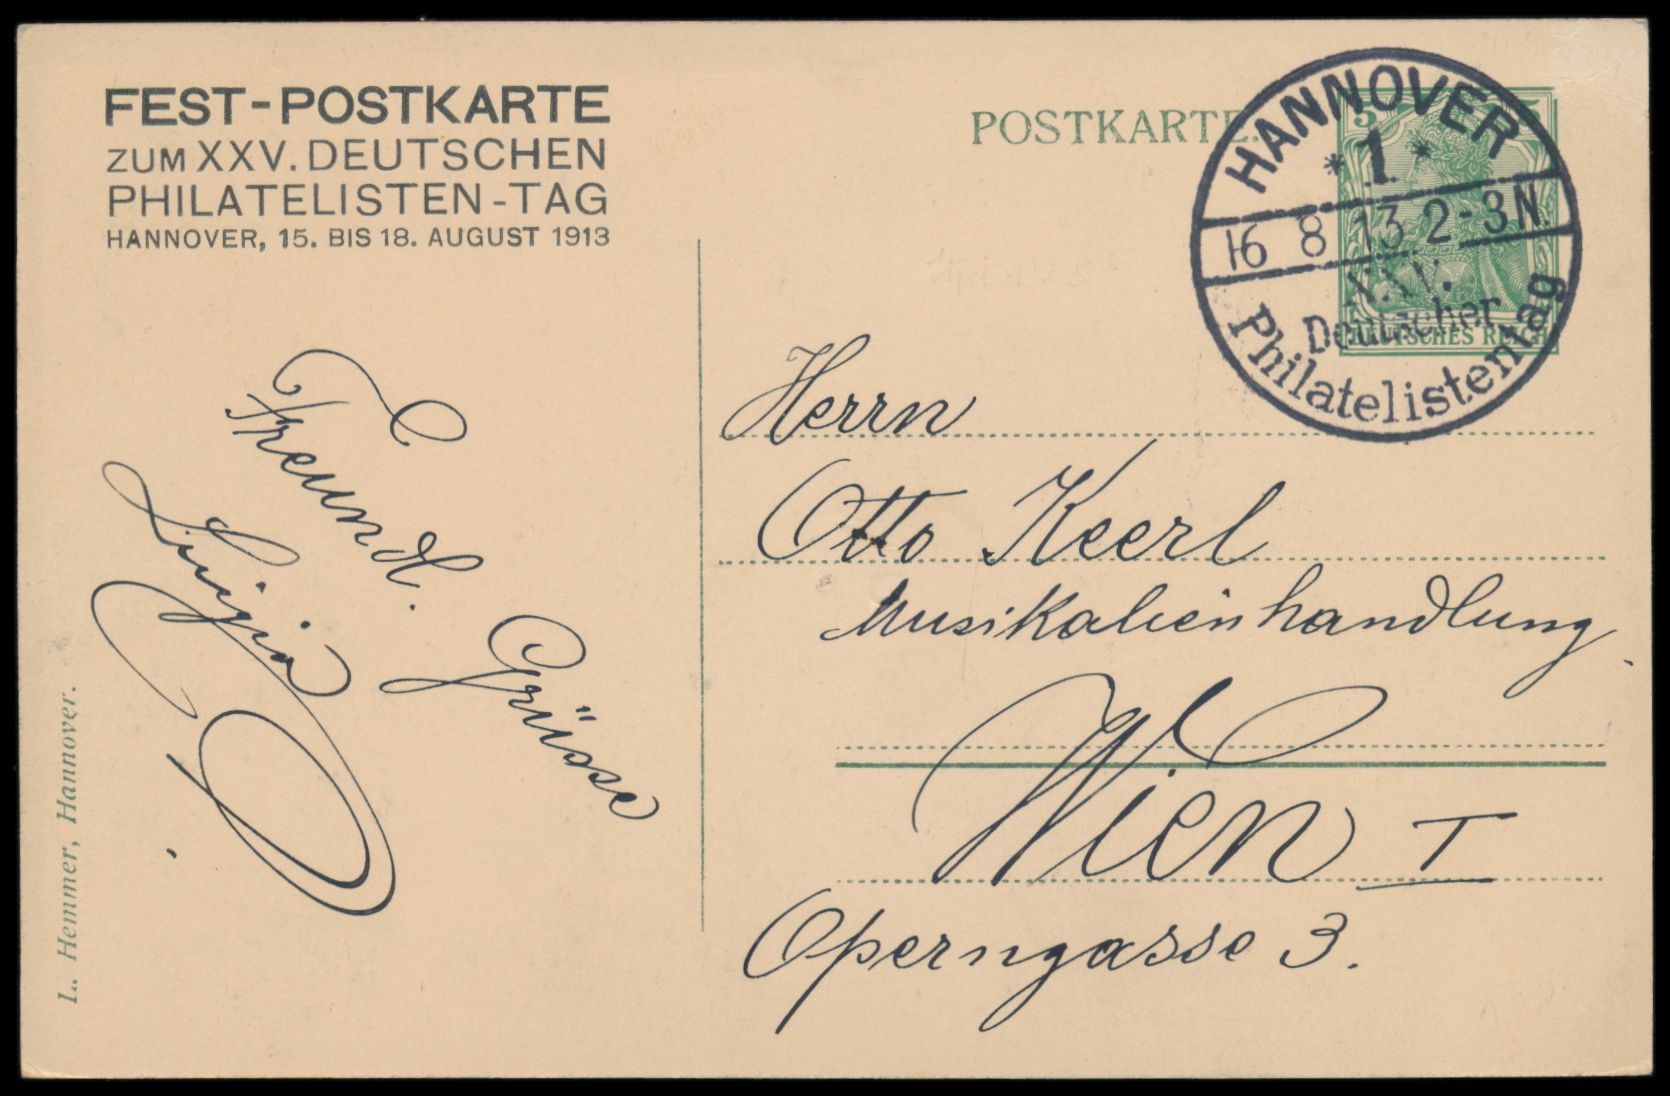 FEST-POSTKARTE
ZUM XXV. DEUTSCHEN
PHILATELISTEN-TAG
HANNOVER, 15. BIS 18. AUGUST 1913
POSTKARTE
HANNOVER
* 1. *
16 8 13 2-3N.
XXV.
Deutscher
Philatelistentag
5
DEUTSCHES REICH
Freundl. Grüsse
Herrn
Otto Keerl
Musikalienhandlung
Wien I
Operngasse 3.
L. Hemmer, Hannover.